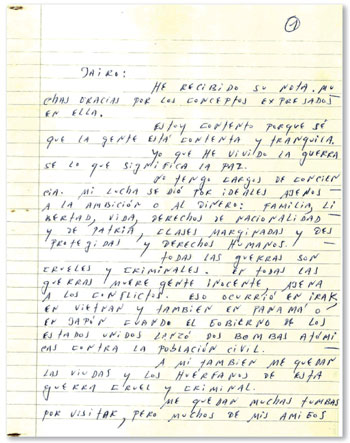 1
Jairo:
HE RECIBIDO SU NOTA. MU-
CHAS GRACIAS POR LOS CONCEPTOS EXPRESADOS
EN ELLA.
ESTOY CONTENTO PORQUE SÉ
QUE LA GENTE ESTÁ CONTENTA Y TRANQUILA.
YO QUE HE VIVIDO LA GUERRA
SE LO QUE SIGNIFICA LA PAZ.
NO TENGO CARGOS DE CONCIEN-
CIA. MI LUCHA SE DIÓ POR IDEALES AJENOS
A LA AMBICIÓN O AL DINERO: FAMILIA, LI-
BERTAD, VIDA, DERECHOS DE NACIONALIDAD
Y DE PATRIA, CLASES MARGINADAS Y DES-
PROTEGIDAS Y DERECHOS HUMANOS.
TODAS LAS GUERRAS SON
CRUELES Y CRIMINALES. EN TODAS LAS
GUERRAS MUERE GENTE INOCENTE, AJENA
A LOS CONFLICTOS. ESO OCURRIÓ EN IRAK,
EN VIETNAN Y TAMBIEN EN PANAMÁ O
EN JAPÓN CUANDO EL GOBIERNO DE LOS
ESTADOS UNIDOS LANZÓ DOS BOMBAS ATÓMI-
CAS CONTRA LA POBLACIÓN CIVIL.
A MI TAMBIEN ME QUEDAN
LAS VIUDAS Y LOS HUERFANOS DE ESTA
GUERRA CRUEL Y CRIMINAL.
ME QUEDAN MUCHAS TUMBAS
POR VISITAR, PERO MUCHOS DE MIS AMIGOS